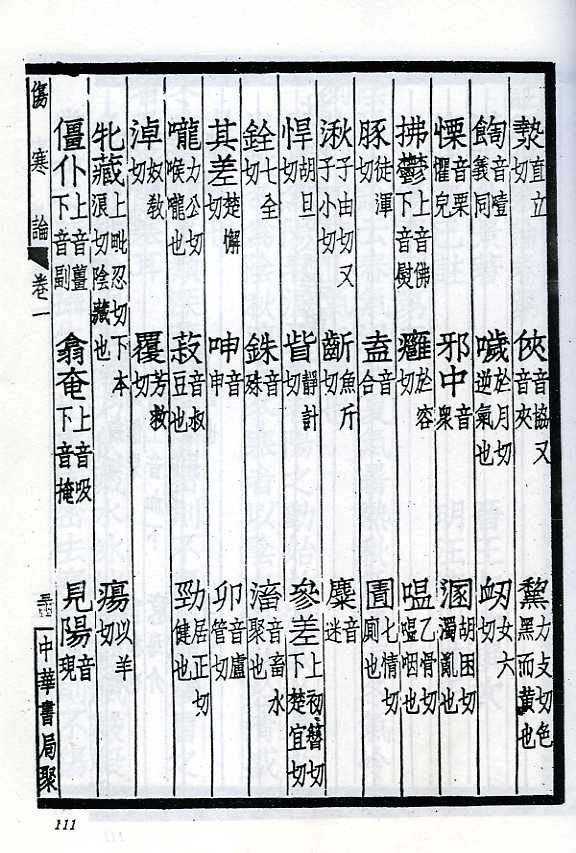 漐直立切 俠音協又音夾 黧力支切色黑而黃也
音噎義同 噦於月切逆氣也 衂女六切
慄音栗懼皃 邪中音衆 溷胡困切濁亂也
拂鬱上音佛下音熨 癰於容切 嗢乙骨切嗢咽也
豚徒渾切 盍音合 圊七情切廁也
湫子由切又子小切 齗魚斤切 麋音迷
悍胡旦切 眥靜計切 參差上初簪切下楚宜切
銓七全切 銖音殊 滀音畜水聚也
其差楚懈切 呻音申 卵音盧管切
嚨力公切喉嚨也 菽音叔豆也 勁居正切健也
淖奴教切 覆芳救切
牝藏上毗忍切下本浪切陰藏也 瘍以羊切
僵仆上音薑下音副 翕奄上音吸下音掩 見陽音現
傷寒論 卷一 中華書局聚
111